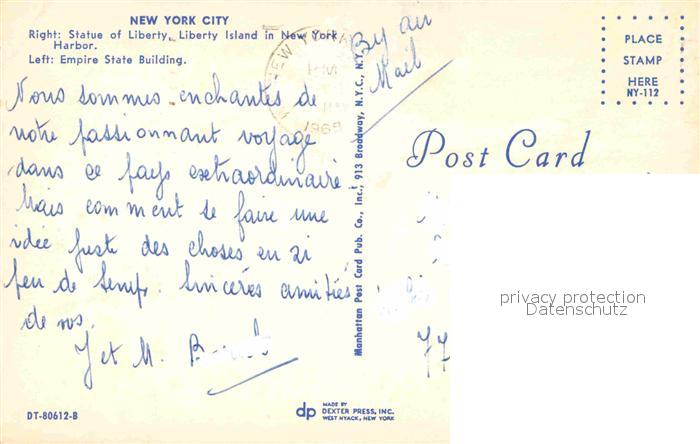 NEW YORK CITY
Right: Statue of Liberty, Liberty Island in New York
Harbor.
Left: Empire State Building.
By air
Mail
PLACE
STAMP
HERE
NY-112
NEW YORK
1969
Nous sommes enchantés de
notre passionnant voyage
dans ce pays extraordinaire
Mais comment se faire une
idée juste des choses en si
peu de temps. Sincères amitiés
de nos.
J et M.
Manhattan Post Card Pub. Co., Inc., 913 Broadway, N.Y.C., N.Y.
Post Card
privacy protection
Datenschutz
77
DT-80612-B
dp
MADE BY
DEXTER PRESS, INC.
WEST NYACK, NEW YORK